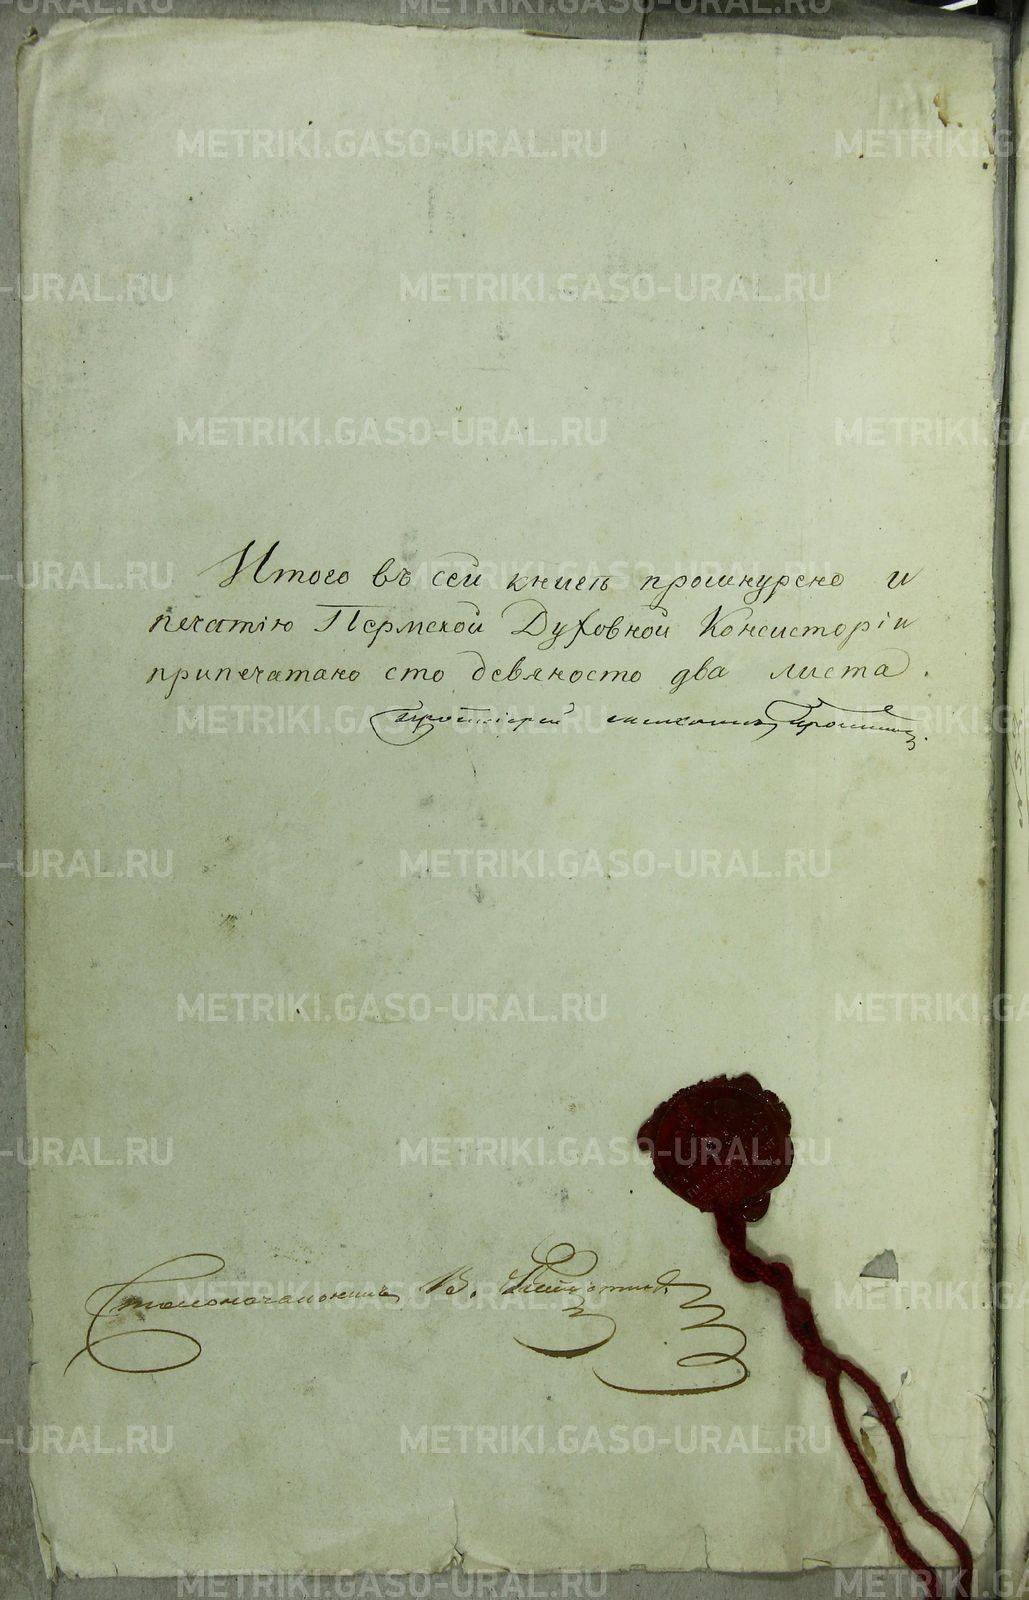 Итого въ сей книгѣ прошнурено и
печатію Пермской Духовной Консисторіи
припечатано сто девяносто два листа.
Протоіерей
Столоначальникъ В.
METRIKI.GASO-URAL.RU